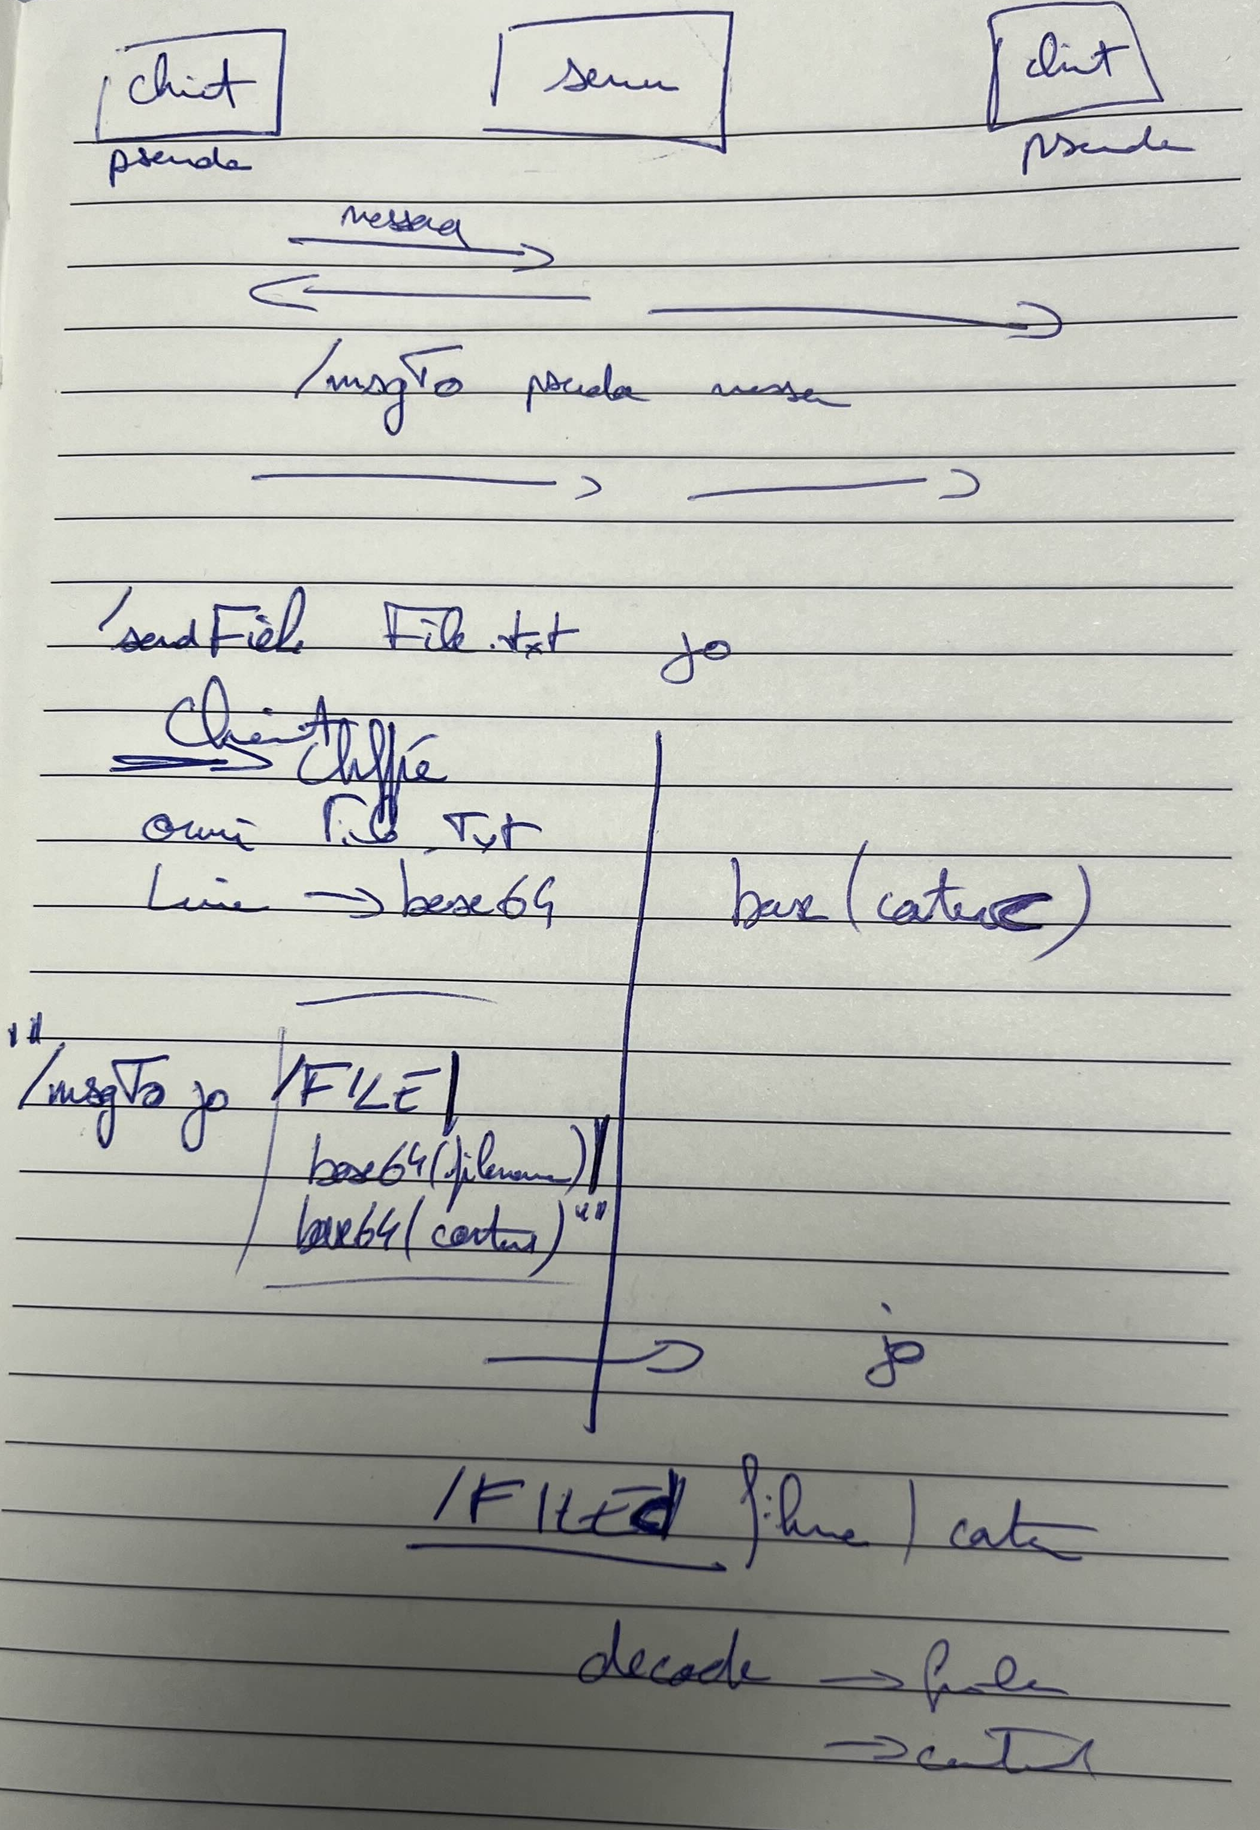 client server client
pseudo pseudo
message
/msgTo pseudo message
/sendFile File.txt jo
Client
Chiffré
ouvrir File.txt
Line → base64 base(contenu)
"
/msgTo jo /FILE|
base64(filename)|
base64(contenu)"
jo
/FILE filename | contenu
decode →
→ contenu